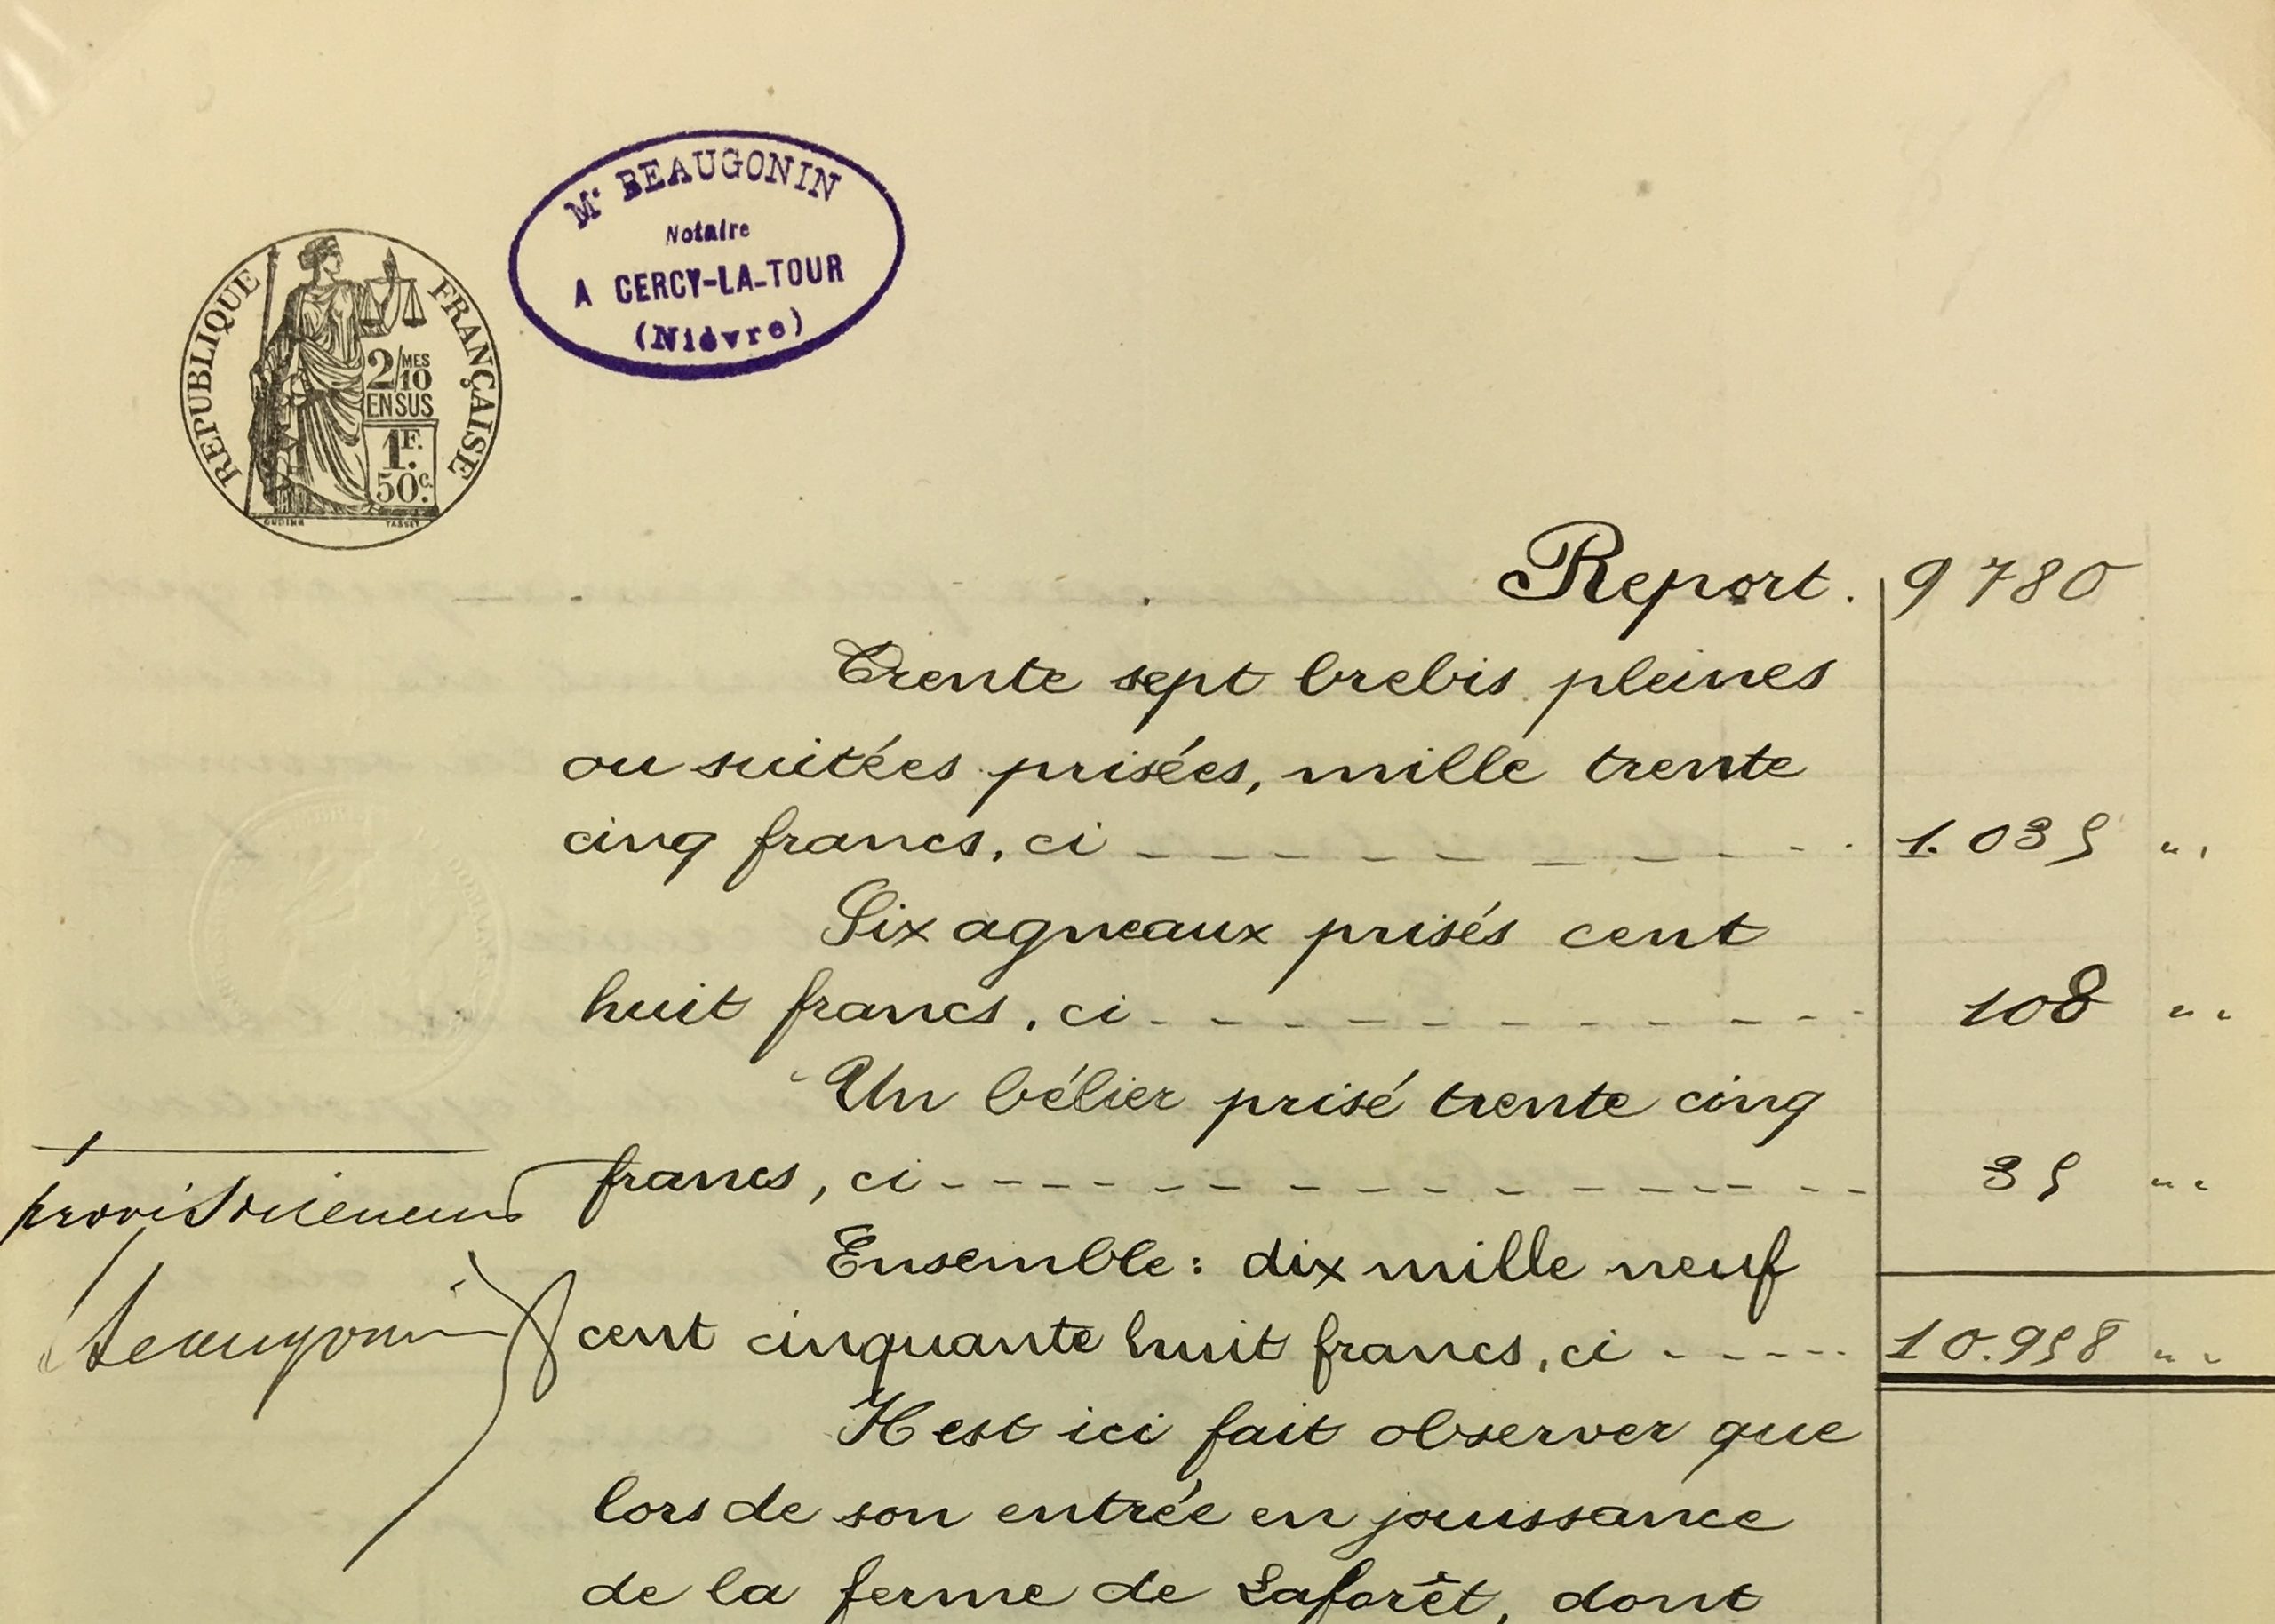 Me BEAUGONIN
Notaire
A CERCY-LA-TOUR
(Nièvre)
REPUBLIQUE FRANÇAISE
2/10 MES
EN SUS
1F.
50c.
OUDINÉ TASSET
Report. 9780
Trente sept brebis pleines
ou suitées prisées, mille trente
cinq francs, ci - - - - - - - - - - 1.035 " "
Six agneaux prisés cent
huit francs, ci - - - - - - - - - - 108 " "
Un bélier prisé trente cinq
francs, ci - - - - - - - - - - - - - 35 " "
Ensemble : dix mille neuf
cent cinquante huit francs, ci - - - - - 10.958 " "
Il est ici fait observer que
lors de son entrée en jouissance
de la ferme de Laforêt, dont
provisoirement
Beaugonin